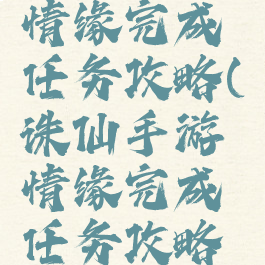 情缘完成
任务攻略(
诛仙手游
情缘完成
任务攻略